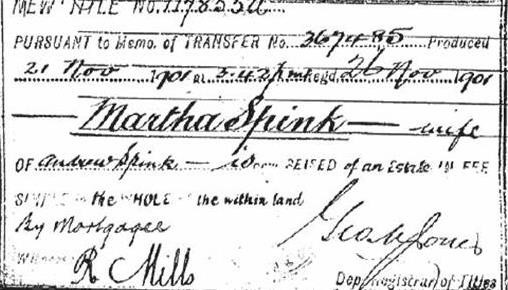 NEW TITLE NO.
PURSUANT to Memo. of TRANSFER No. 367485 Produced
21 Nov 1901 at 3.42 pm Regd 26 Nov 1901
Martha Spink — wife
OF Andrew Spink — is SEISED of an Estate IN FEE
SIMPLE in the WHOLE of the within land
By Mortgagee
Geo. Jones
Witness R Mills
Dep. Registrar of Titles